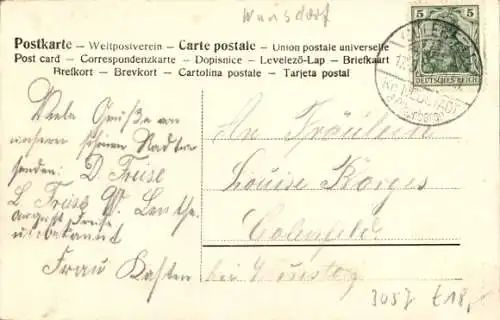 Wunsdorf
Postkarte – Weltpostverein – Carte postale – Union postale universelle
Post card – Correspondenzkarte – Dopisnice – Levelező-Lap – Briefkaart
Brefkort – Brevkort – Cartolina postale – Tarjeta postal
5 5
DEUTSCHES REICH
Viele Grüße von
unserer schönen Radtour
senden: D. Freise
L. Freise W.
August Freise
unbekannt
Frau Kasten
An Fräulein
Louise Borges
Colenfeld
bei Wunstorf
3057 €18,